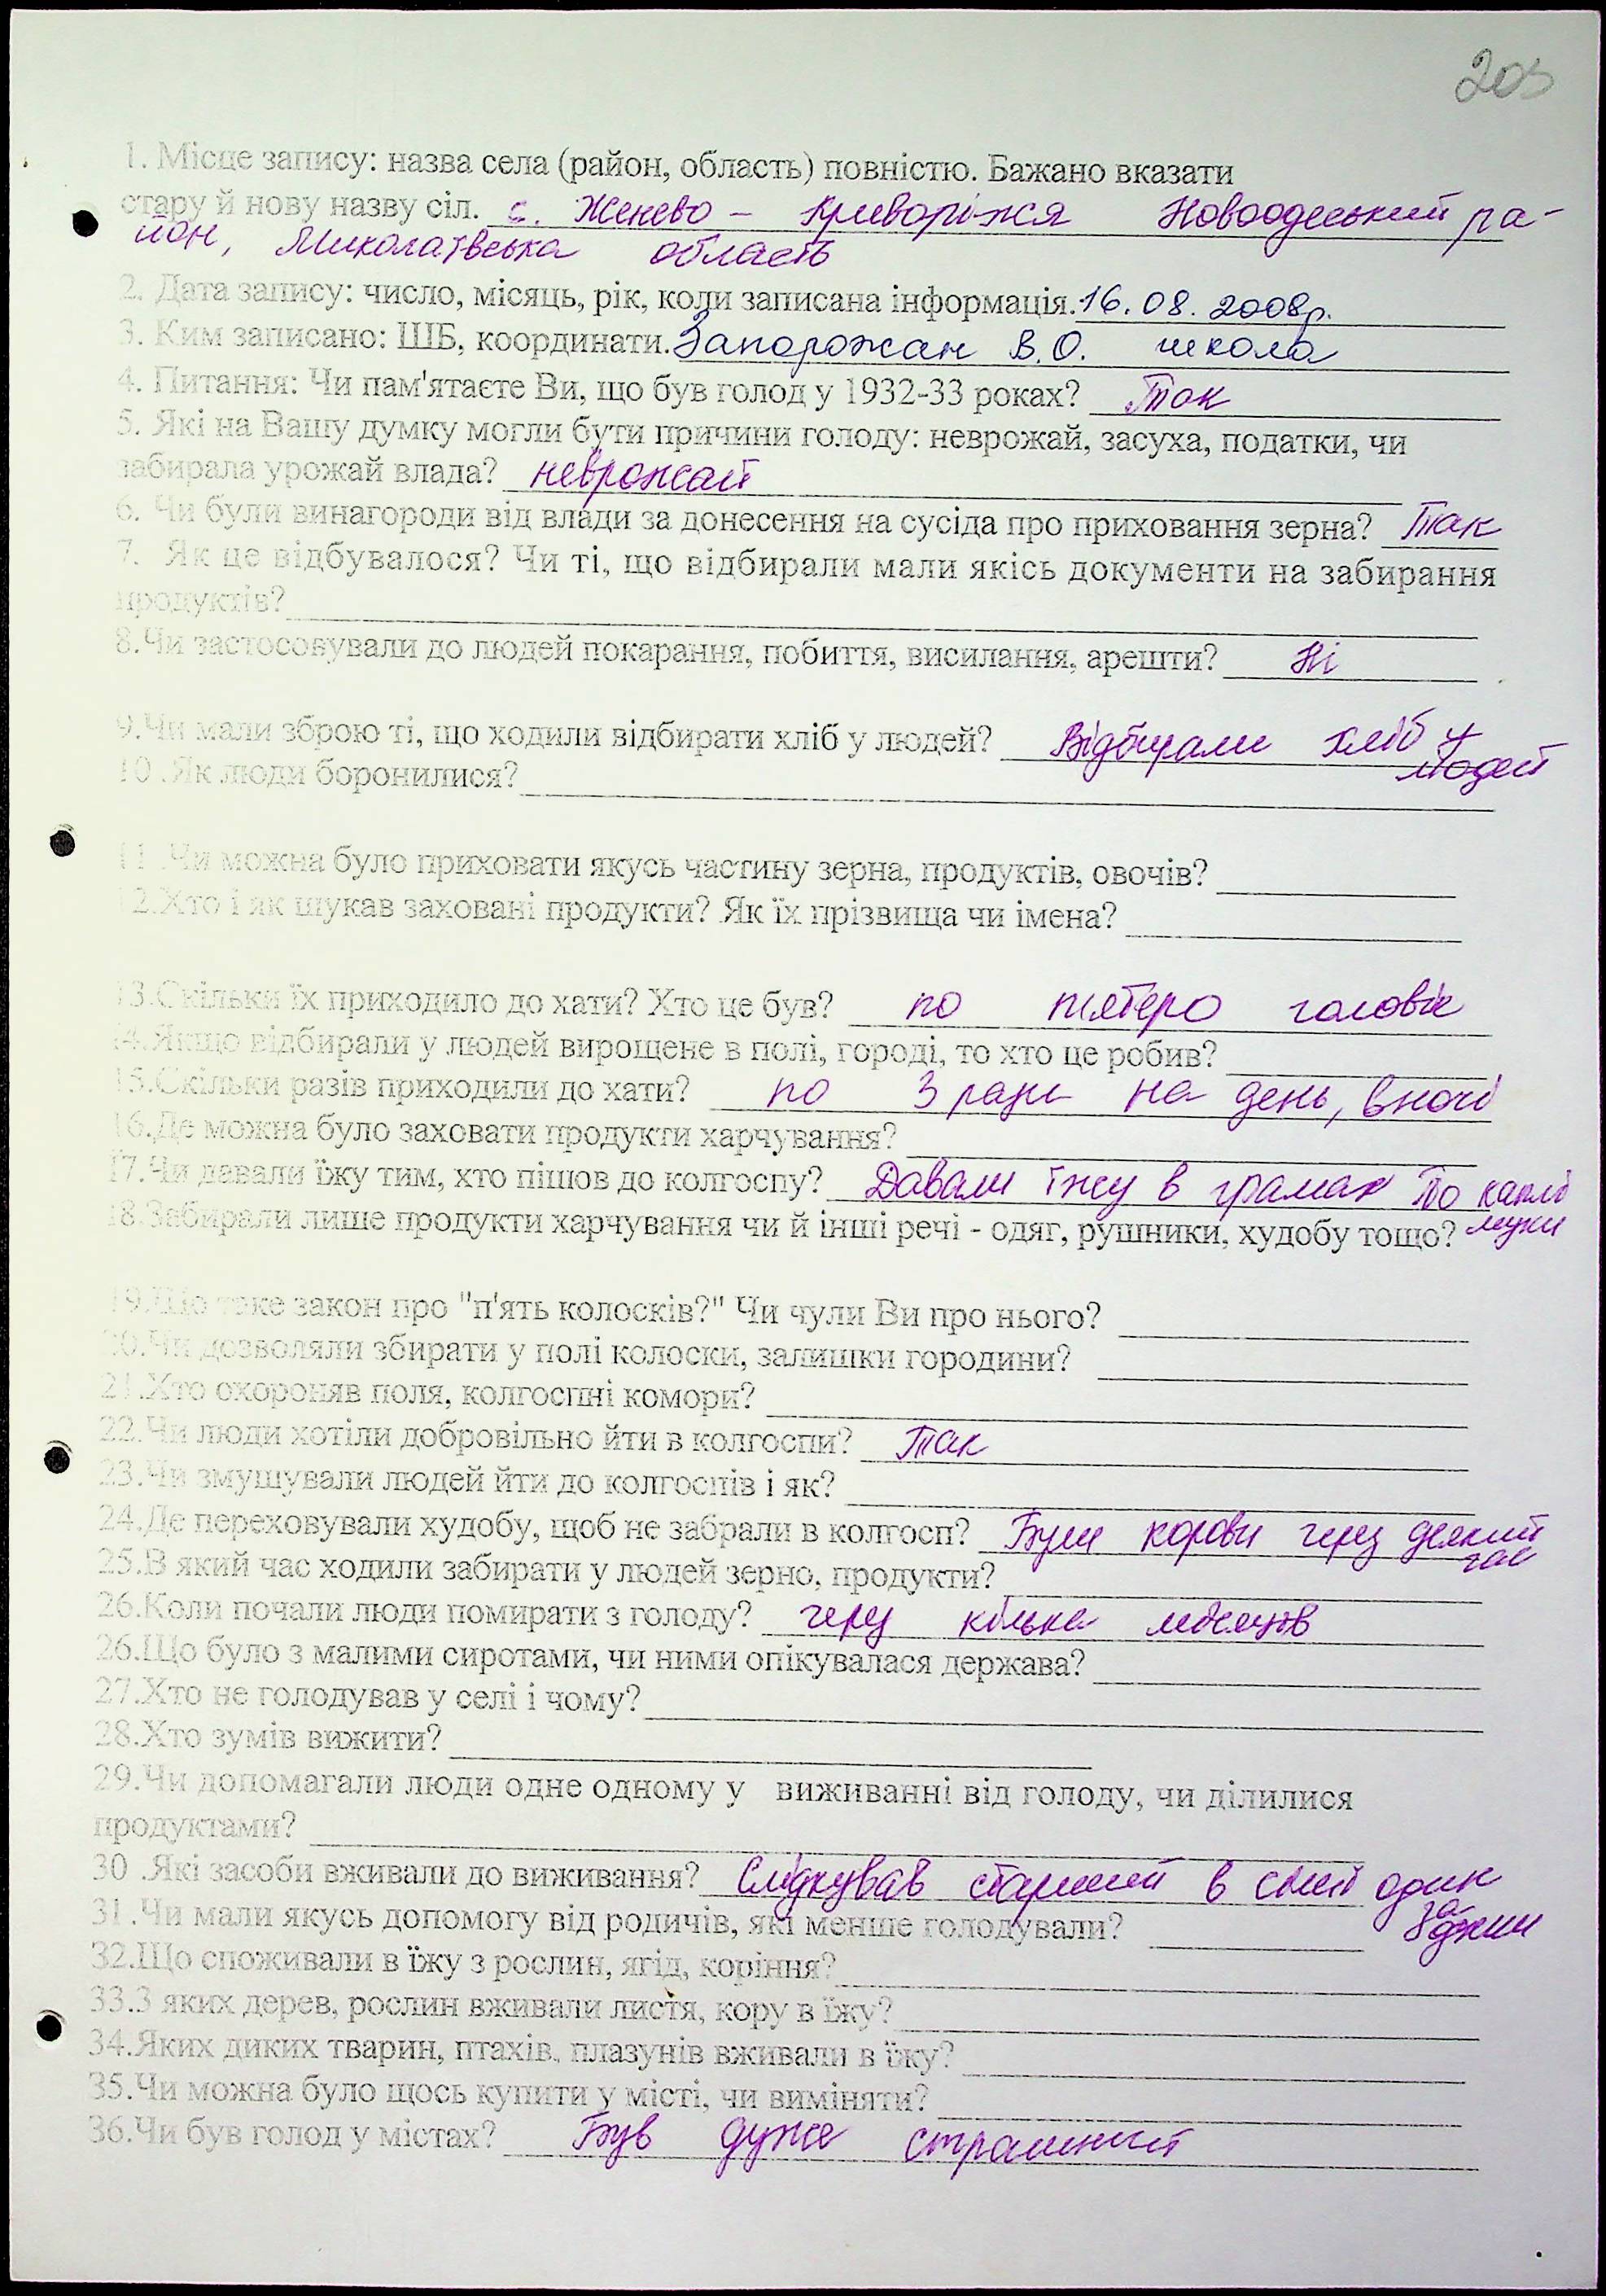 203
1. Місце запису: назва села (район, область) повністю. Бажано вказати
стару й нову назву сіл. с. Женево - Криворіжжя Новоодеський ра-
йон, Миколаївська область
2. Дата запису: число, місяць, рік, коли записана інформація. 16.08.2008р.
3. Ким записано: ПІБ, координати. Запорожан В.О. школа
4. Питання: Чи пам'ятаєте Ви, що був голод у 1932-33 роках? Так
5. Які на Вашу думку могли бути причини голоду: неврожай, засуха, податки, чи
забирала урожай влада? неврожай
6. Чи були винагороди від влади за донесення на сусіда про приховання зерна? Так
7. Як це відбувалося? Чи ті, що відбирали мали якісь документи на забирання
продуктів?
8.Чи застосовували до людей покарання, побиття, висилання, арешти? Ні
9.Чи мали зброю ті, що ходили відбирати хліб у людей? Відбирали хліб у
людей
10 .Як люди боронилися?
11 .Чи можна було приховати якусь частину зерна, продуктів, овочів?
12.Хто і як шукав заховані продукти? Як їх прізвища чи імена?
13.Скільки їх приходило до хати? Хто це був? по пятеро чоловік
14.Якщо відбирали у людей вирощене в полі, городі, то хто це робив?
15.Скільки разів приходили до хати? по 3 рази на день, вночі
16.Де можна було заховати продукти харчування?
17.Чи давали їжу тим, хто пішов до колгоспу? Давали їжу в грамах По каплі
муки
18.Забирали лише продукти харчування чи й інші речі - одяг, рушники, худобу тощо?
19.Що таке закон про "п'ять колосків?" Чи чули Ви про нього?
20.Чи дозволяли збирати у полі колоски, залишки городини?
21.Хто охороняв поля, колгоспні комори?
22.Чи люди хотіли добровільно йти в колгоспи? Так
23.Чи змушували людей йти до колгоспів і як?
24.Де переховували худобу, щоб не забрали в колгосп? Були корови через деякий
час
25.В який час ходили забирати у людей зерно, продукти?
26.Коли почали люди помирати з голоду? через кілька місяців
26.Що було з малими сиротами, чи ними опікувалася держава?
27.Хто не голодував у селі і чому?
28.Хто зумів вижити?
29.Чи допомагали люди одне одному у виживанні від голоду, чи ділилися
продуктами?
30 .Які засоби вживали до виживання? Слідкував старший в сімї один
за
31.Чи мали якусь допомогу від родичів, які менше голодували?
32.Що споживали в їжу з рослин, ягід, коріння?
33.З яких дерев, рослин вживали листя, кору в їжу?
34.Яких диких тварин, птахів, плазунів вживали в їжу?
35.Чи можна було щось купити у місті, чи виміняти?
36.Чи був голод у містах? Був дуже страшний